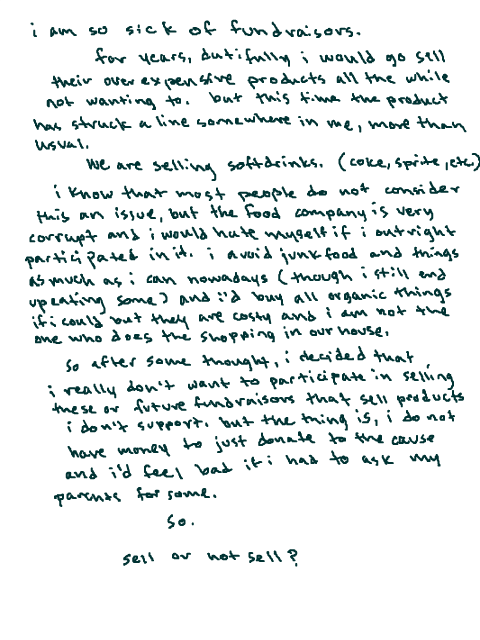 i am so sick of fundraisors.
for years, dutifully i would go sell
their over expensive products all the while
not wanting to. but this time the product
has struck a line somewhere in me, more than
usual.
we are selling softdrinks. (coke, sprite, etc.)
i know that most people do not consider
this an issue, but the food company is very
corrupt and i would hate myself if i outright
participated in it. i avoid junk food and things
as much as i can nowadays (though i still end
up eating some) and i'd buy all organic things
if i could but they are costy and i am not the
one who does the shopping in our house.
so after some thought, i decided that
i really don't want to participate in selling
these or future fundraisors that sell products
i don't support. but the thing is, i do not
have money to just donate to the cause
and i'd feel bad if i had to ask my
parents for some.
so.
sell or not sell?